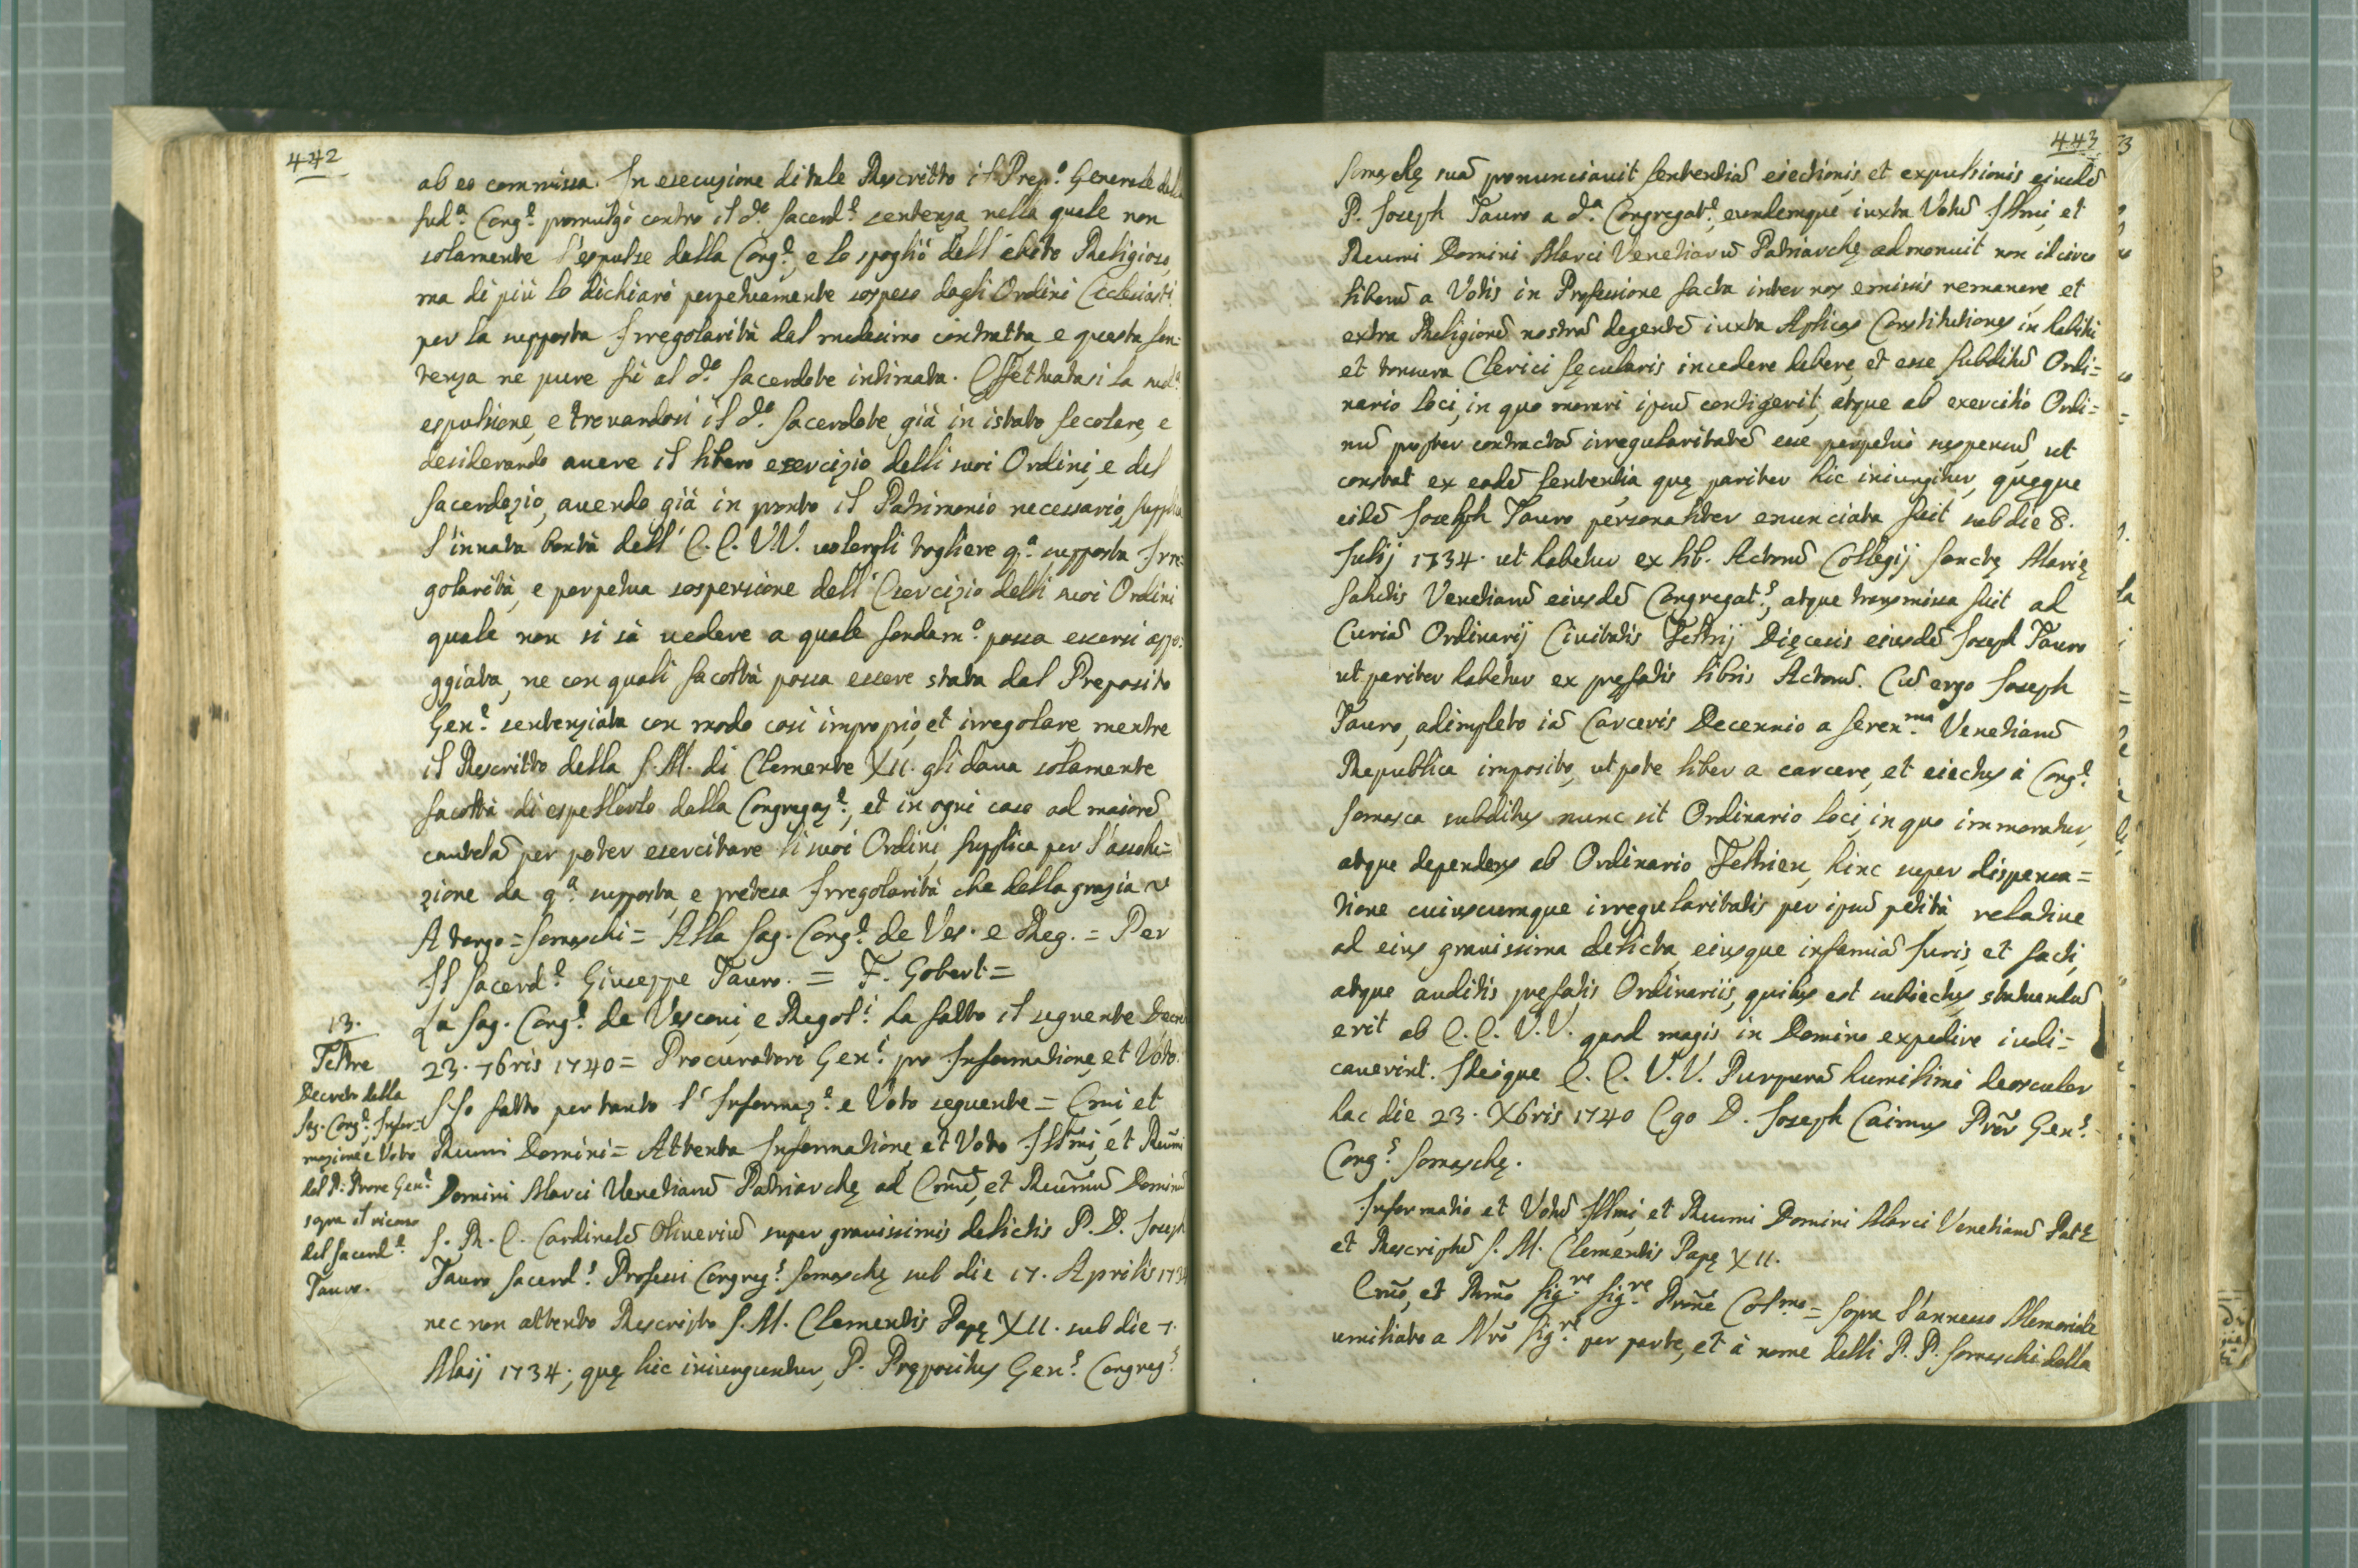 442
ab eo commissa. In esecuzione di tale Rescritto il Prep.o Generale della
sud.a Cong.e promulgò contro il d.o Sacerd.e sentenza nella quale non
solamente l'espulse dalla Cong.e, e lo spogliò dell'abito Religioso,
ma di più lo dichiarò perpetuamente sospeso dagli Ordini Ecclesiasti
per la supposta Irregolarità dal medesimo contratta, e questa sen-
tenza ne pure fù al d.o Sacerdote intimata. Effettuatasi la sud.a
espulsione, e trovandosi il d.o Sacerdote già in istato secolare, e
desiderando avere il libero esercizio delli suoi Ordini, e del
Sacerdozio, avendo già in pronto il Patrimonio necessario, supplica
l'innata bontà dell' E.E. VV. volergli togliere q.a supposta Irre-
golarità, e perpetua sospensione dell'Esercizio delli suoi Ordini
quale non si sà vedere a quale fondam.o possa essersi appo-
ggiata, ne con quali facoltà possa essere stata dal Preposito
Gen.e sentenziata con modo così improprio, et irregolare, mentre
il Rescritto della S.M. di Clemente XII. gli dava solamente
facoltà di espellerlo dalla Congregaz.e, et in ogni caso ad maiorẽ
cautelã per poter esercitare li suoi Ordini, supplica per l'assolu-
zione da q.a supposta, e pretesa Irregolarità che della grazia
A tergo = Somaschi = Alla Sag. Cong.e de Ves. e Reg. = Per
Il Sacerd.e Giuseppe Tauro. = F. Gobert =
La Sag. Cong.e de Vescovi, e Regol.i ha fatto il seguente Decre
23. 7bris 1740 = Procuratori Gen.i pro Informatione, et Voto.
Ho fatto per tanto l'Informaz.e e Voto seguente = Emi et
Reumi Domini = Attenta Informatione, et Voto Illm̃i, et Reum̃i
Domini Marci Venetiarũ Patriarchę ad Em̃ũ, et Reum̃ũ Dominũ
S. R. E. Cardinalẽ Oliveriũ super gravissimis delictis P. D. Joseph
Tauro Sacerd.s Professi Congreg.s Somaschę sub die 17. Aprilis 173
nec non attento Rescripto S. M. Clementis Papę XII. sub die 7.
Maij 1734; quę hic iniunguntur, P. Prępositus Gen.s Congreg.s
13.
Feltre
Decreto della
Sag. Cong.e Infor-
mazione, e Voto
del P. Prore Gen.e
sopra il ricorso
del Sacerd.e
Tauro.
443
Somaschę suã pronunciavit sententiã eiectionis, et expulsionis eiusdẽ
P. Joseph Tauro a d.a Congregat.e, eundemque iuxta Votũ Illmi, et
Reumi Domini Marci Venetiarũ Patriarchę admonuit non idcirco
liberũ a Votis in Professione facta inter nos emissis remanere et
extra Religionẽ nostrã degentẽ iuxta Aplicas Constitutiones in habitu
et tonsura Clerici sęcularis incedere debere, et esse subditũ Ordi=
nario loci, in quo morari ipsũ contigerit, atque ab exercitio Ordi=
nũ propter contractã irregularitatẽ esse perpetuò suspensũ, ut
constat ex eadẽ sententia quę pariter hic iniungitur, quęque
eidẽ Joseph Tauro personaliter enunciata fuit sub die 8.
Julij 1734. ut habetur ex lib. Actorũ Collegij Sanctę Marię
Salutis Venetiarũ eiusdẽ Congregat.s, atque transmissa fuit ad
Curiã Ordinarij Civitatis Feltrij Dięcesis eiusdẽ Joseph Tauro
ut pariter habetur ex pręfatis libris Actorũ. Cũ ergo Joseph
Tauro, adimpleto iã Carceris Decennio a Seren.ma Venetiarũ
Republica imposito, ut pote liber a carcere, et eiectus à Cong.e
Somasca subditus nunc sit Ordinario loci, in quo immoratur,
atque dependens ab Ordinario Feltrien, hinc super dispensa=
tione cuiuscumque irregularitatis per ipsũ petità relative
ad eius gravissima delicta, eiusque infamiã Juris, et facti,
atque auditis pręfatis Ordinariis, quibus est subiectus, statuendũ
erit ab E. E. V.V. quod magis in Domino expedire iudi=
caverint. Hisque E. E. V. V. Purpurã humilimè deosculor
hac die 23. Xbris 1740 Ego D. Joseph Caimus Prõr Gen.s
Cong.s Somaschę.
Informatio et Votũ Illm̃i, et Reumi Domini Marci Venetiarũ Patę
et Rescriptũ S. M. Clementis Papę XII.
Em̃o, et Rm̃o Sig.re Sig.re Prõne Col.mo = Sopra l'annesso Memoriale
umiliato a Nrõ Sig.re per parte, et à nome delli P. P. Somaschi della